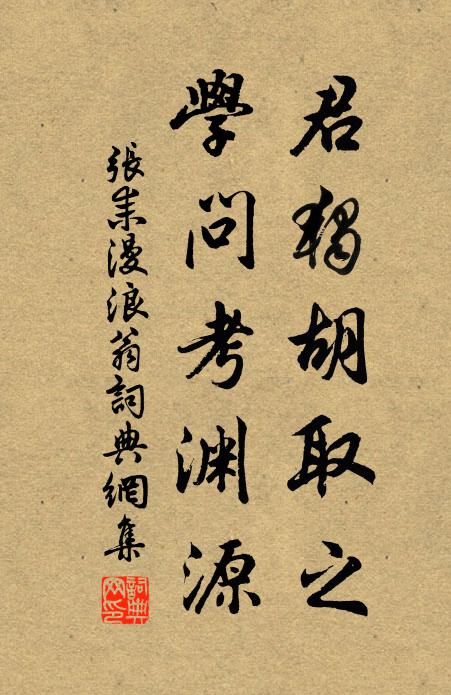 君獨胡取之
學問考渊源
張耒漫浪翁詞典網集
詞典網印